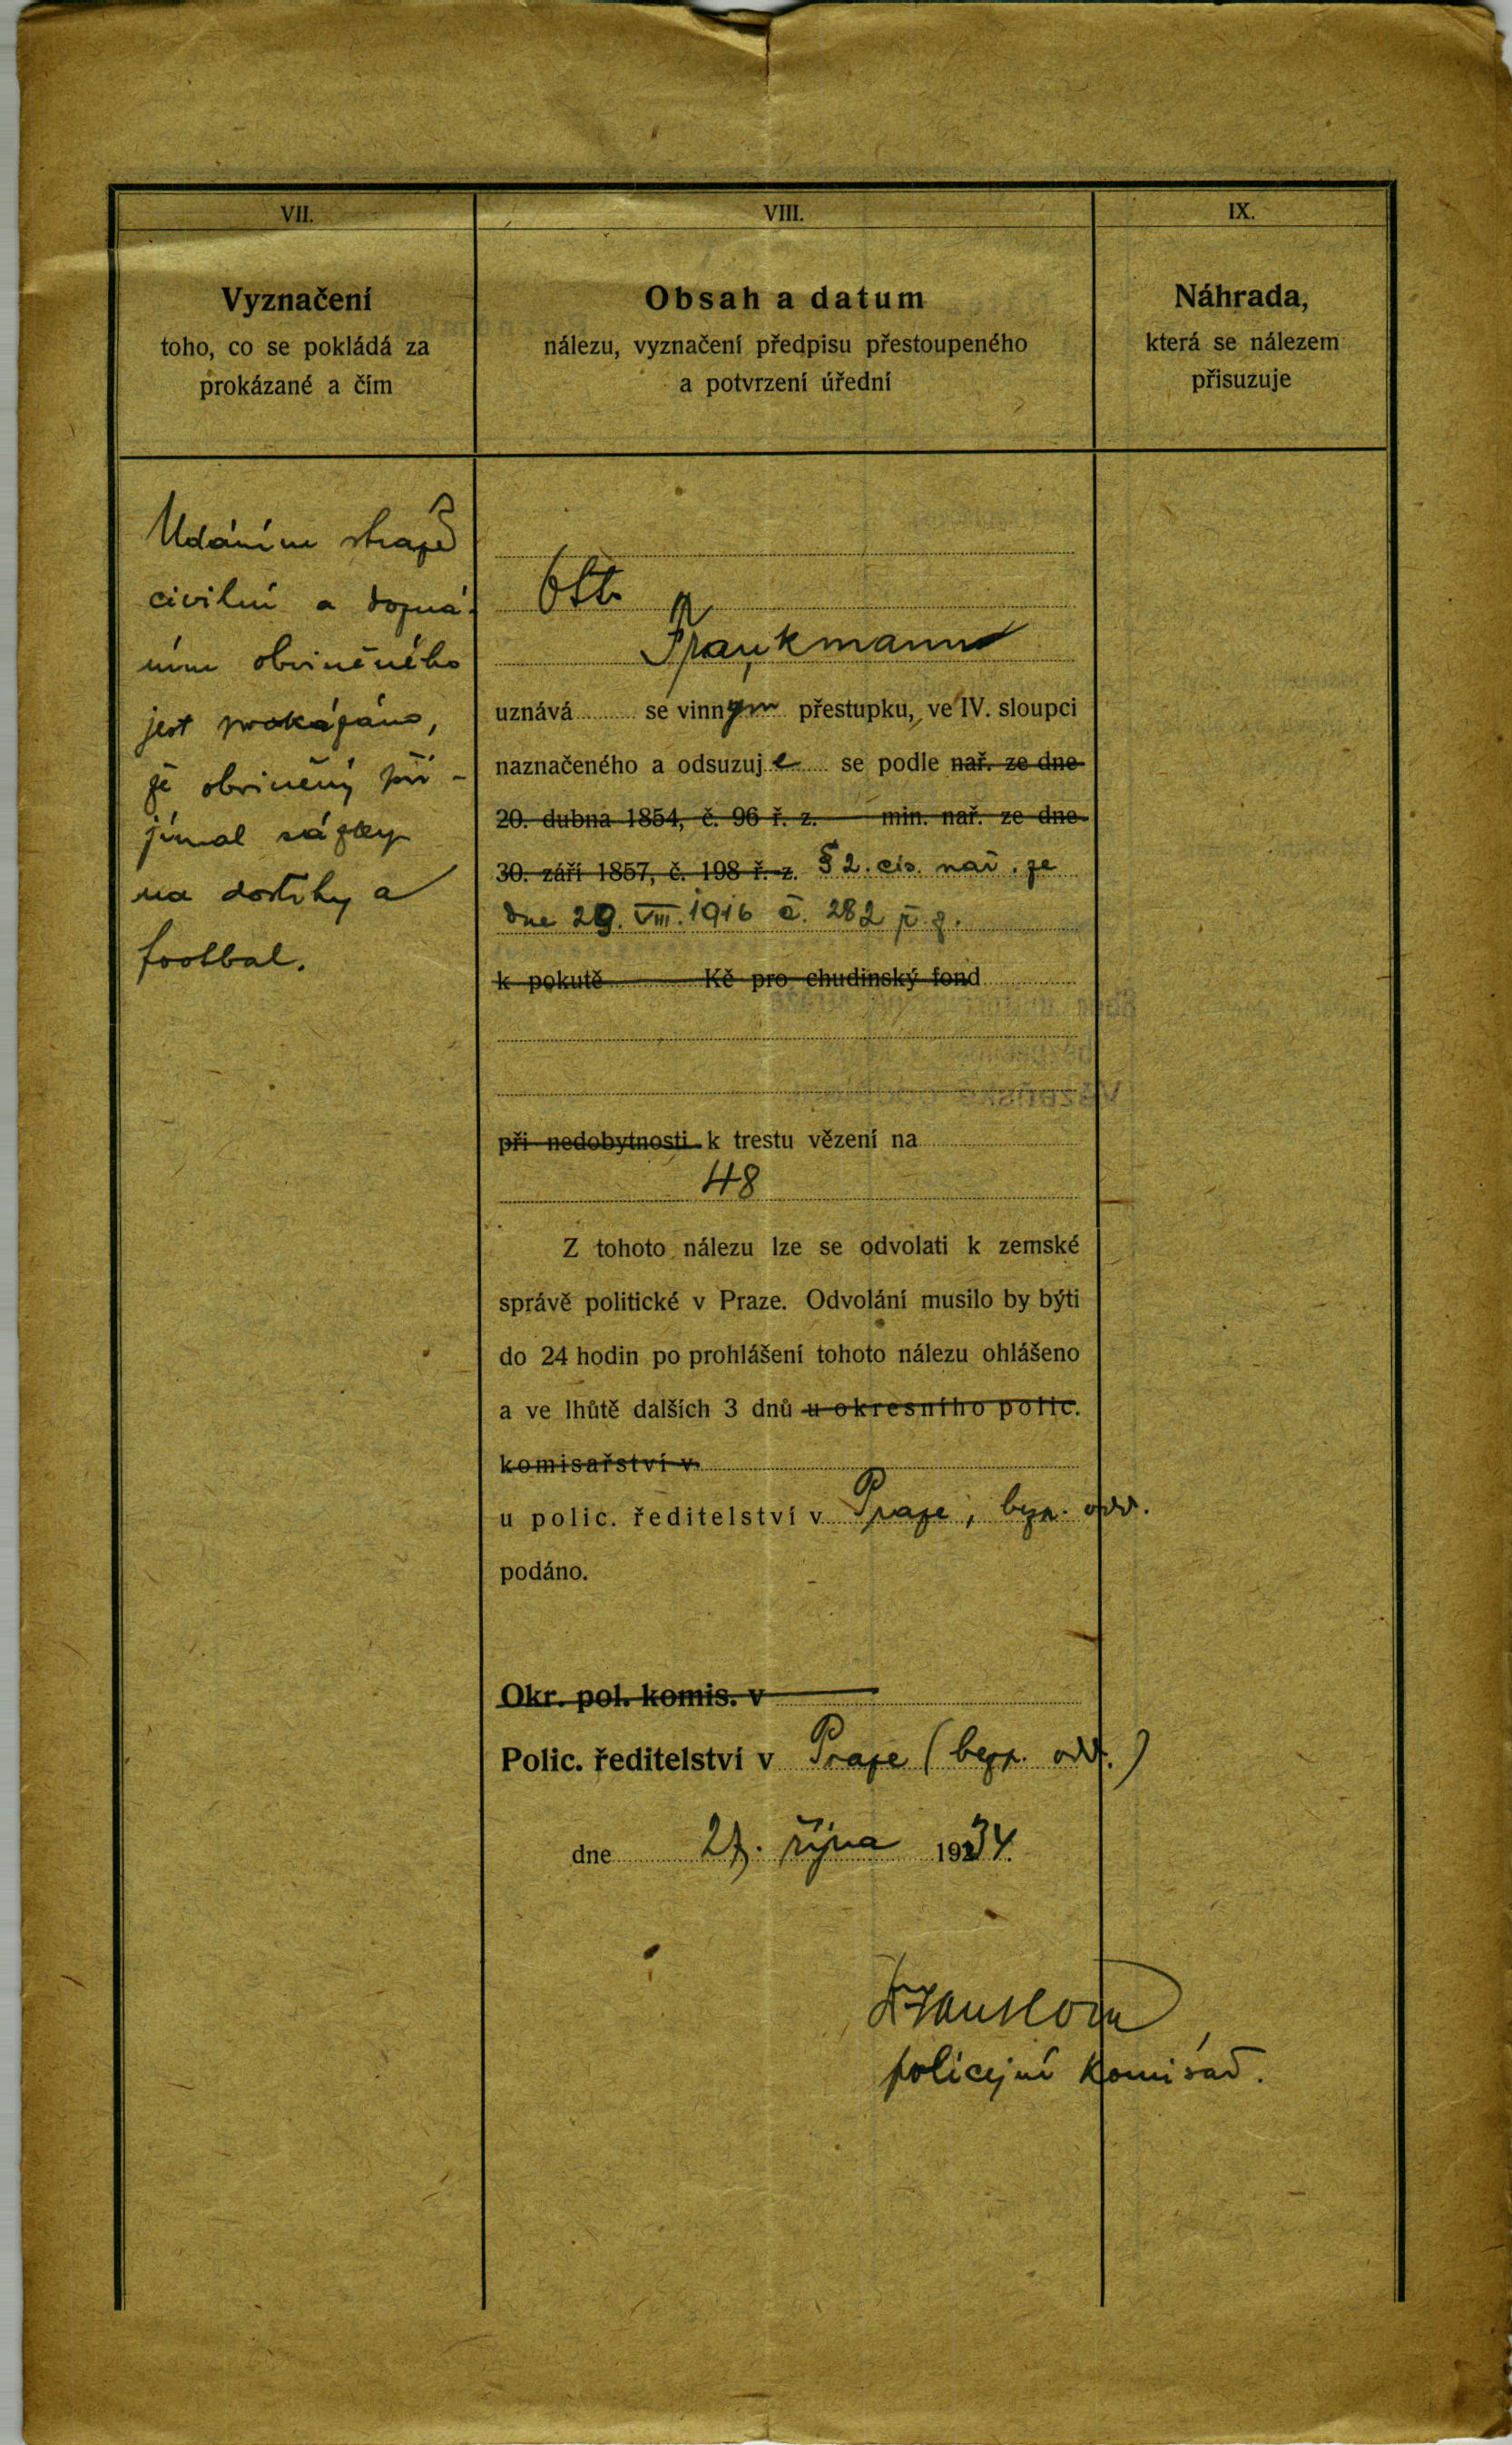 VII.
Vyznačení
toho, co se pokládá za
prokázané a čím
Udáním stráže
civilní a dozná-
ním obviněného
jest prokázáno,
že obviněný při-
jímal sázky
na dostihy a
football.
VIII.
Obsah a datum
nálezu, vyznačení předpisu přestoupeného
a potvrzení úřední
Otto
Frankmann
uznává se vinným přestupku, ve IV. sloupci
naznačeného a odsuzuje se podle nař. ze dne
20. dubna 1854, č. 96 ř. z. min. nař. ze dne
30. září 1857, č. 198 ř. z. § 2. cís. nař. ze
dne 29. VIII. 1916 č. 282 ř. z.
k pokutě Kč pro chudinský fond
při nedobytnosti k trestu vězení na
48
Z tohoto nálezu lze se odvolati k zemské
správě politické v Praze. Odvolání musilo by býti
do 24 hodin po prohlášení tohoto nálezu ohlášeno
a ve lhůtě dalších 3 dnů u okresního polic.
komisařství v
u polic. ředitelství v Praze, bezp. odd.
podáno.
Okr. pol. komis. v
Polic. ředitelství v Praze (bezp. odd.)
dne 27. října 1934.
policejní komisař.
IX.
Náhrada,
která se nálezem
přisuzuje